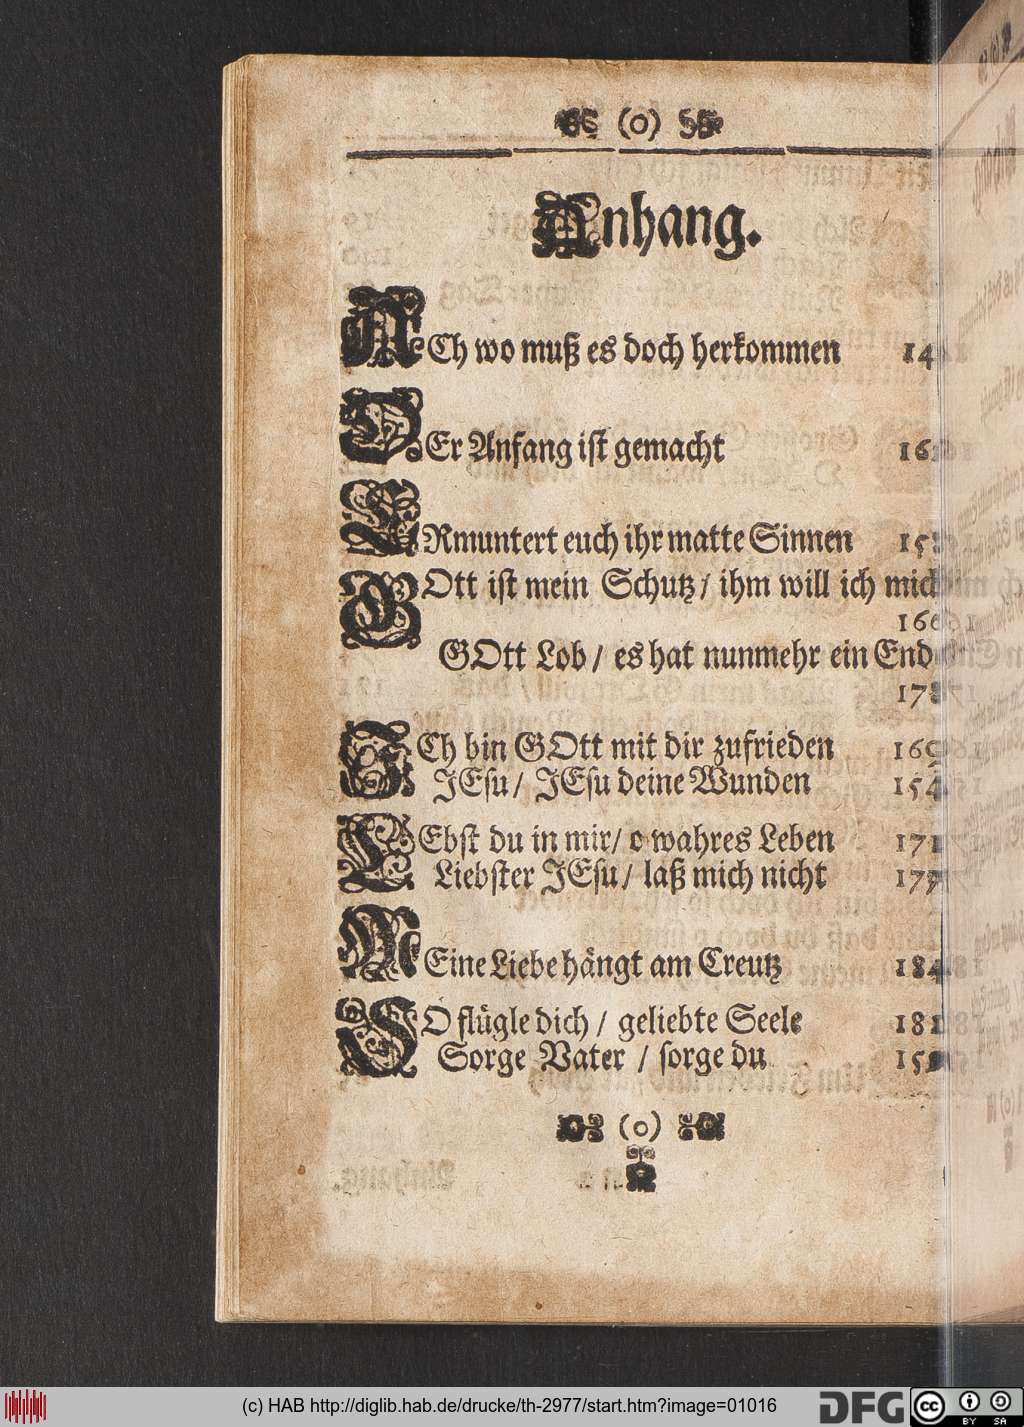 (o)
Anhang.
ACh wo muß es doch herkommen
DEr Anfang ist gemacht
ERmuntert euch ihr matte Sinnen
GOtt ist mein Schutz / ihm will ich
GOtt Lob / es hat nunmehr ein
ICh bin GOtt mit dir zufrieden
JEsu / JEsu deine Wunden
LEbst du in mir / o wahres Leben
Liebster JEsu / laß mich nicht
MEine Liebe hängt am Creutz
SO flügle dich / geliebte Seele
Sorge Vater / sorge du
(o)
(c) HAB http://diglib.hab.de/drucke/th-2977/start.htm?image=01016
DFG
cc
BY SA